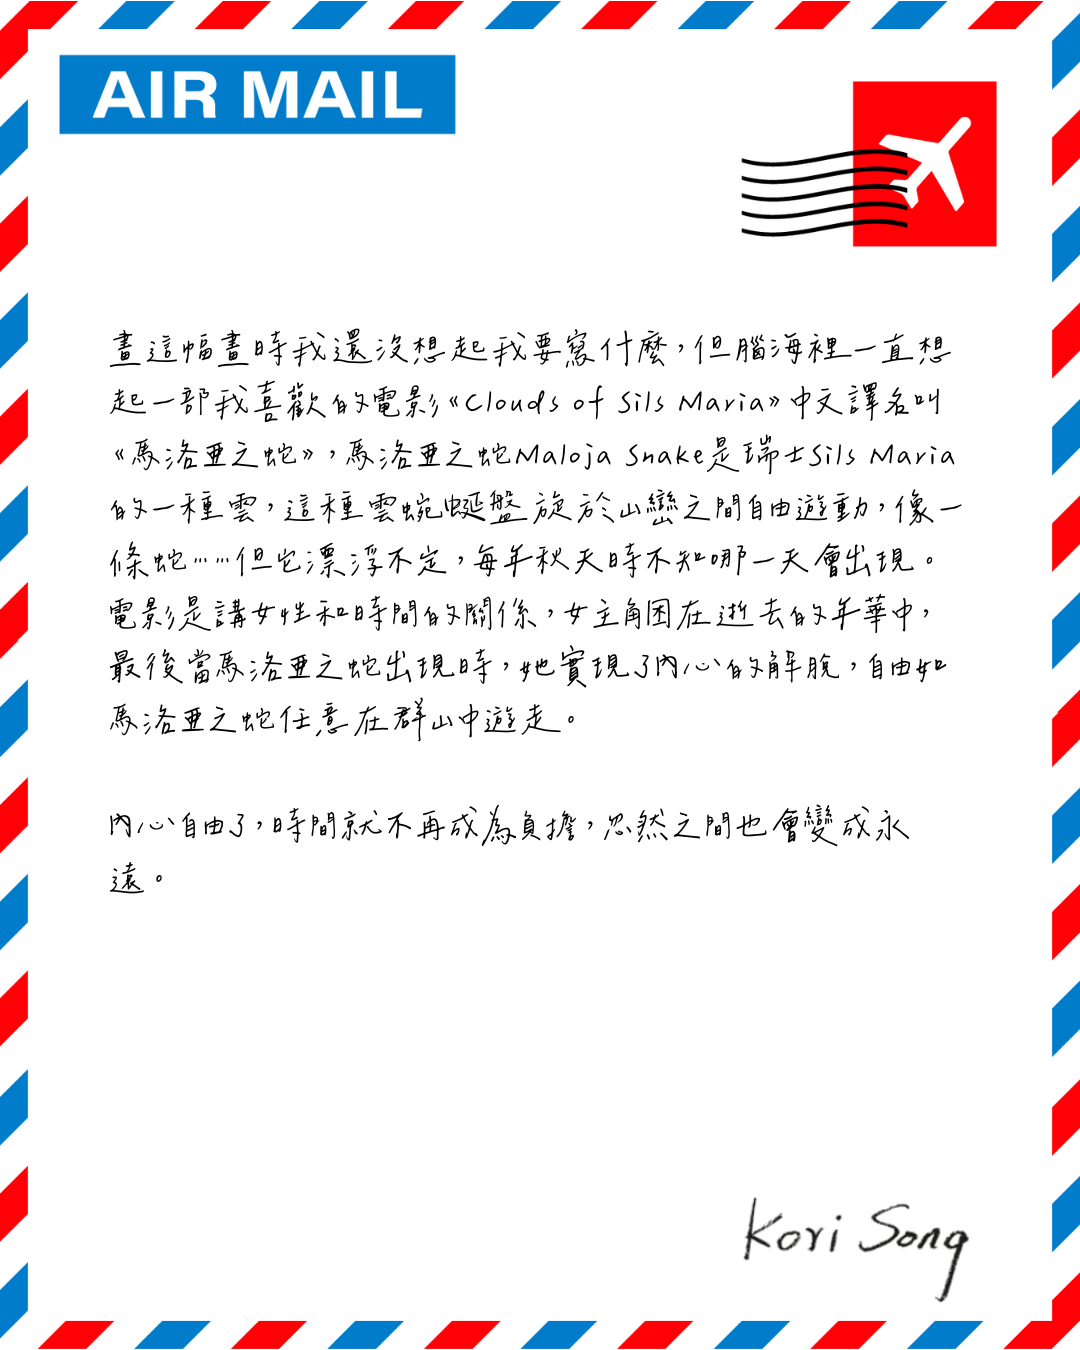 AIR MAIL
畫這幅畫時我還沒想起我要寫什麼，但腦海裡一直想
起一部我喜歡的電影《Clouds of Sils Maria》中文譯名叫
《馬洛亞之蛇》，馬洛亞之蛇Maloja Snake是瑞士Sils Maria
的一種雲，這種雲蜿蜒盤旋於山巒之間自由遊動，像一
條蛇……但它漂浮不定，每年秋天時不知哪一天會出現。
電影是講女性和時間的關係，女主角困在逝去的年華中，
最後當馬洛亞之蛇出現時，她實現了內心的解脫，自由如
馬洛亞之蛇任意在群山中遊走。
內心自由了，時間就不再成為負擔，忽然之間也會變成永
遠。
Kori Song